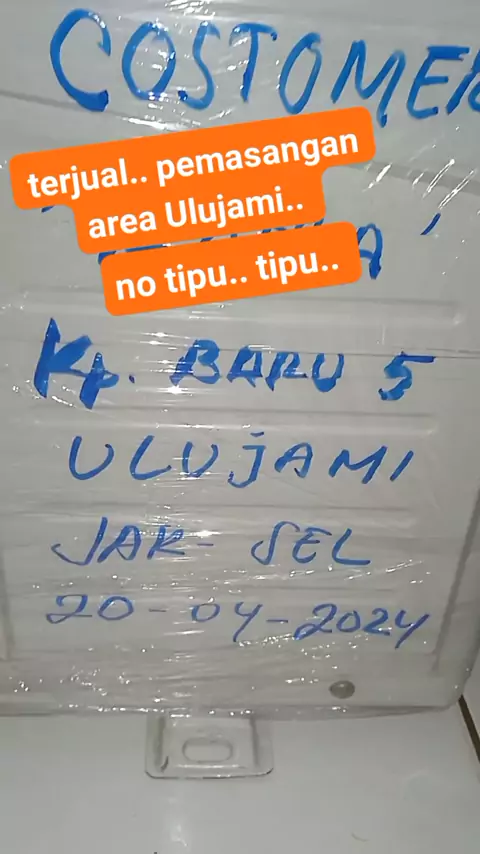 COSTOMER
terjual.. pemasangan
area Ulujami..
no tipu.. tipu..
Kp. BARU 5
ULUJAMI
JAK-SEL
20-04-2024